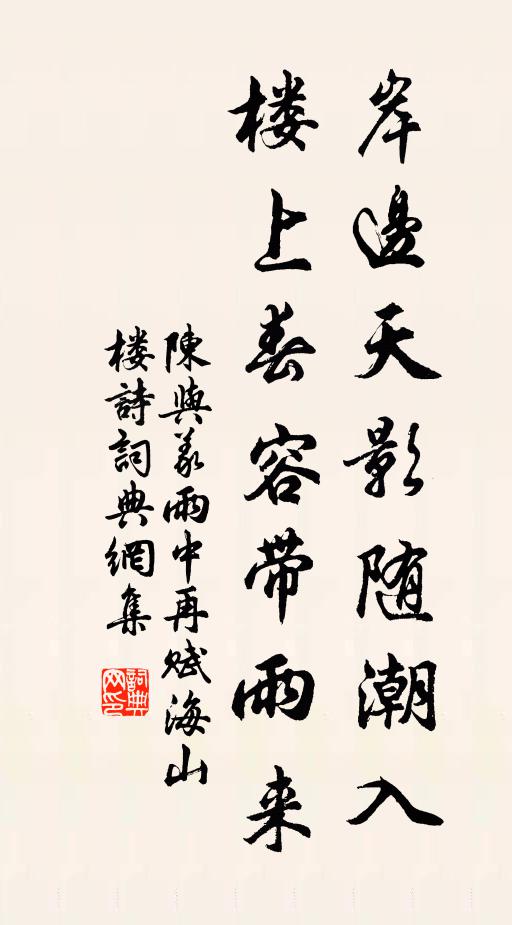 岸邊天影随潮入
楼上春容带雨来
陳與义雨中再赋海山
楼詩詞典網集
詞典
网印